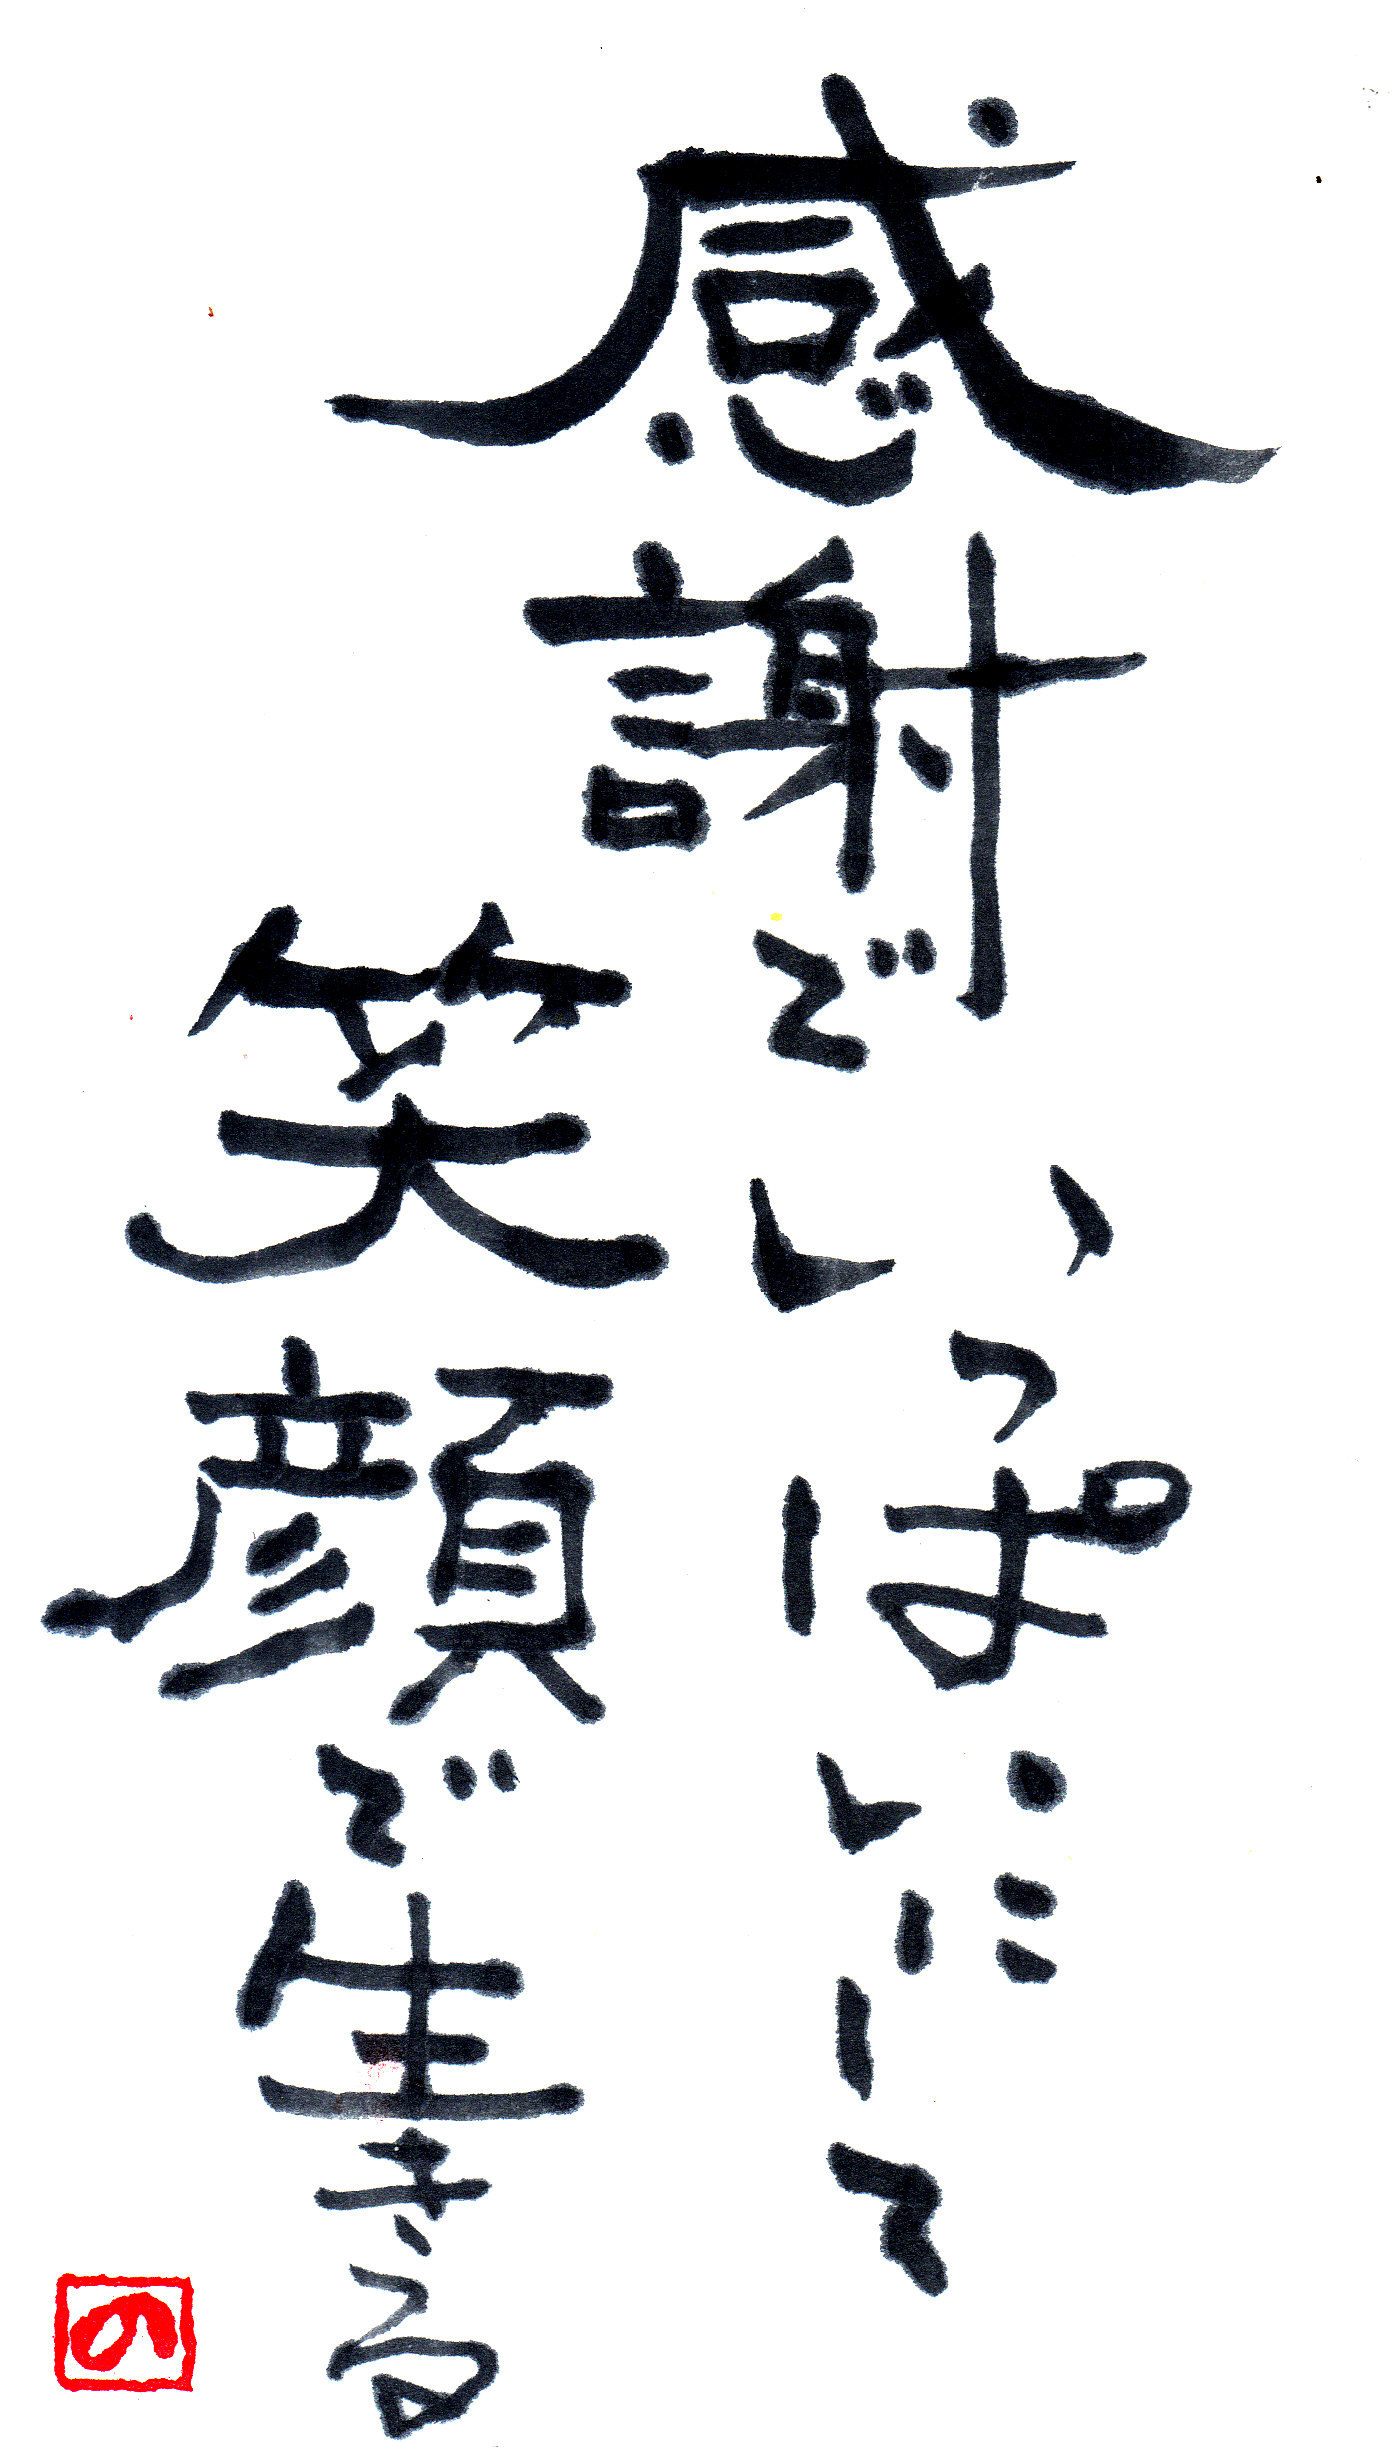 感謝でいっぱいにして
笑顔で生きる
の